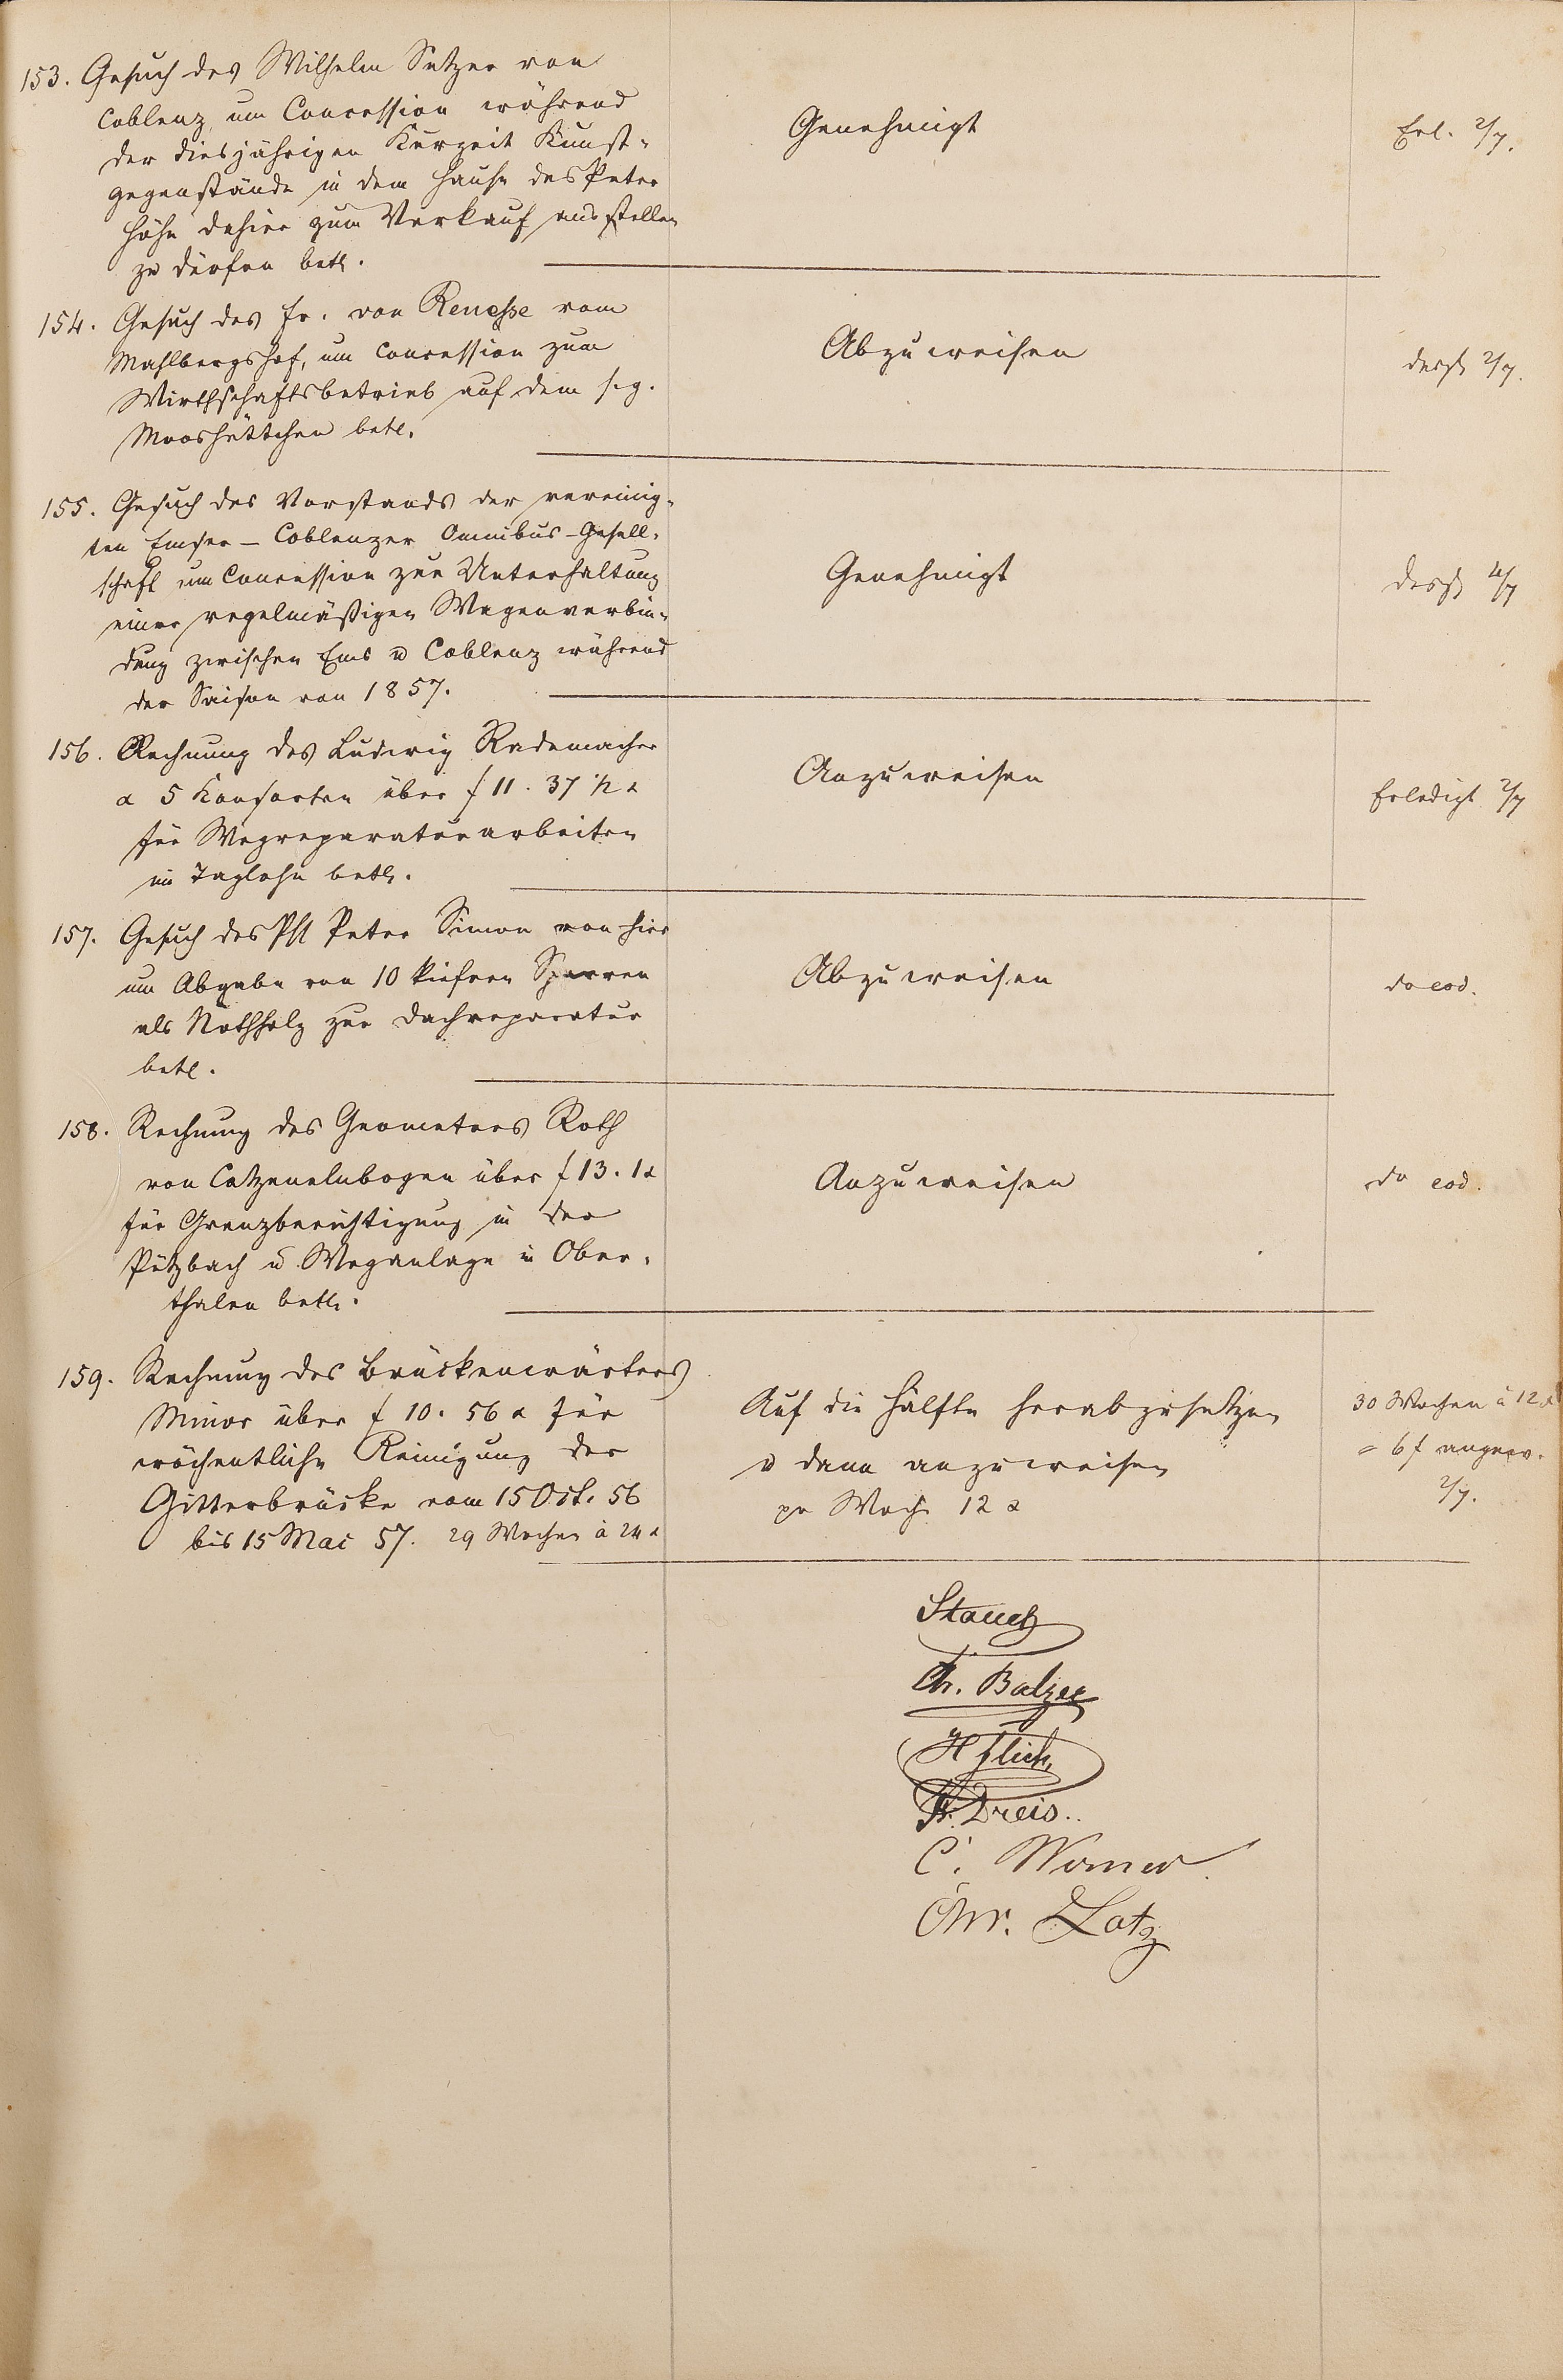 153. Gesuch des Wilhelm Setzer von
Coblenz, um Concession während
der diesjährigen Kurzeit Kunst-
gegenstände in dem Hause des Peter
Höhn dahier zum Verkauf ausstellen
zu dürfen betr.
Genehmigt
Erl. 2/7.
154. Gesuch des Fr. von Renesse vom
Mahlbergshof, um Concession zum
Wirthschaftsbetrieb auf dem s.g.
Mooshüttchen betr.
Abzuweisen
desgl 2/7.
155. Gesuch des Vorstands der vereinig-
ten Emser - Coblenzer Omnibus-Gesell-
schaft um Concession zur Unterhaltung
einer regelmäßigen Wagenverbin-
dung zwischen Ems u Coblenz während
der Saison von 1857.
Genehmigt
desgl 4/7
156. Rechnung des Ludwig Rademacher
& 5 Konsorten über f 11. 37 1/2 x
für Wegreparaturarbeiten
im Taglohn betr.
Anzuweisen
Erledigt 2/7
157. Gesuch des Phl Peter Simon von hier
um Abgabe von 10 kiefern Sparren
als Nothholz zur Dachreparatur
betr.
Abzuweisen
do eod.
158. Rechnung des Geometers Roth
von Catzenelnbogen über f 13. 1 x
für Grenzberichtigung in der
Pützbach u. Weganlage in Ober-
thalen betr.
Anzuweisen
do eod.
159. Rechnung des Brückenwärters
Minor über f 10. 56 x für
wöchentliche Reinigung der
Gitterbrücke vom 15 Oct. 56
bis 15 Mai 57. 29 Wochen à 24 x
Auf die Hälfte herabzusetzen
u dann anzuweisen
pr Woche 12 x
30 Wochen à 12 x
= 6 f angew.
2/7.
Stauch
Ch. Balzer
H Flick
Dreis
C. Werner
Chr. Lotz